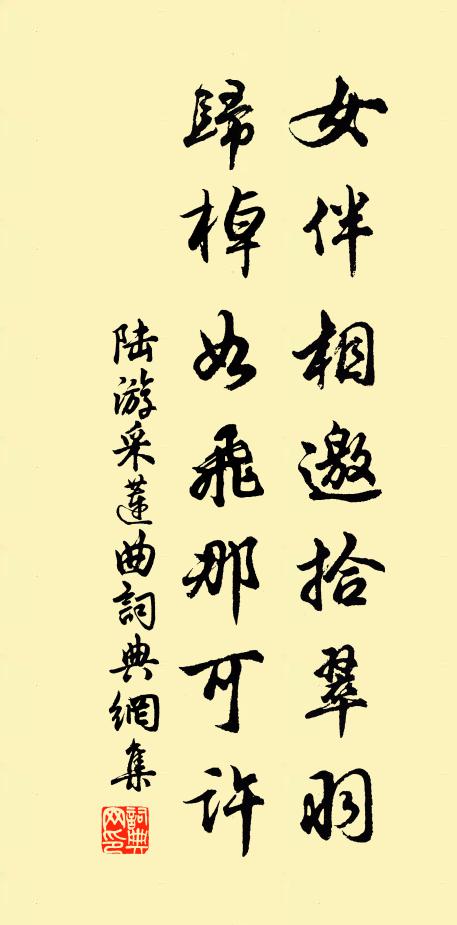 女伴相邀拾翠羽
歸棹如飛那可許
陆游采蓮曲詞典網集
詞典网印